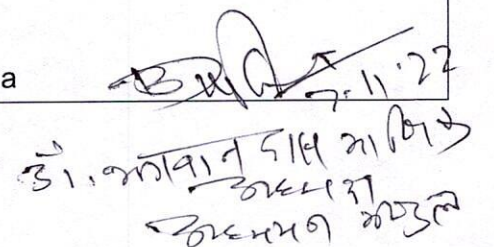 a
7.11.22
डॉ. भगवान दास माणिक
अध्यक्ष
अध्ययन मण्डल